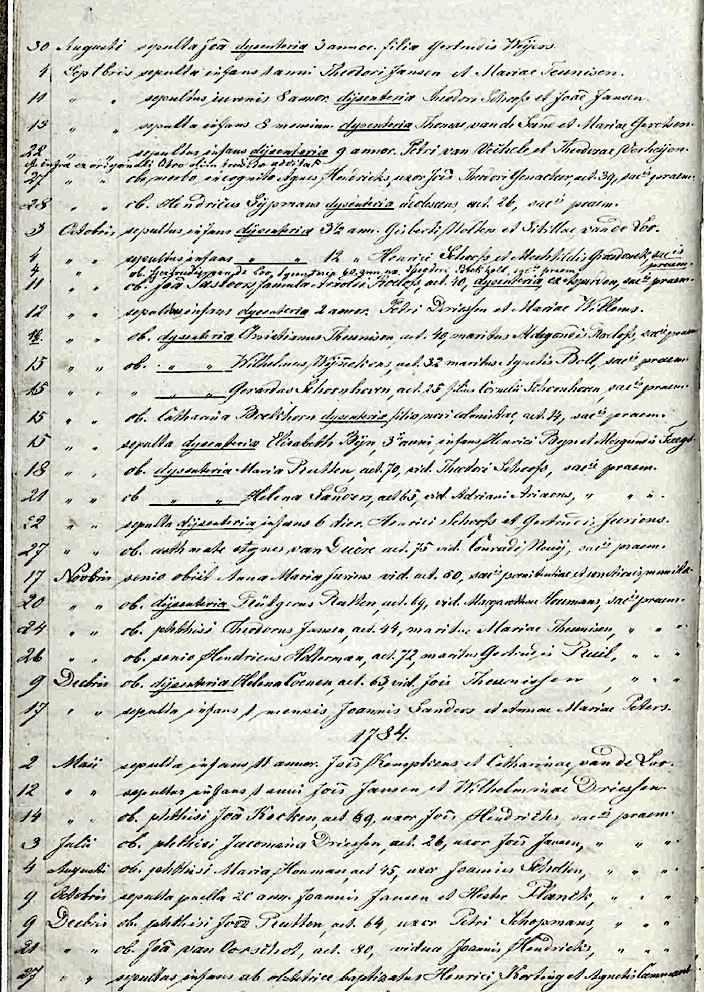 30 Augusti sepulta Joã dysenteria 3 annor. filia Gertrudis Weijers.
4 Septbris sepulta infans 1 anni Theodori Jansen et Mariae Teunisen.
11 " " sepultus iuvenis 8 annor. dijsenteria Theodori Schoofs et Joãe Jansen.
13 " " sepulta infans 8 mensium dysenteria Thomae van de Sand et Mariae Gerritsen.
22 " " sepultus infans dijsenteria 9 annor. Petri van Wickele et Theodorae Verheijen.
27 " " ob. morbo incognito Agnes Hendricks, uxor Jois Theodori Genacker, aet. 39, sacis praem.
28 " " ob. Hendricus Sijpmans dysenteria aet. 26, sacis praem.
3 Octobris sepultus infans dijsenteria 3½ ann. Gisberti Holten et Sibillae van de Loo.
4 " " sepultus infans " " 12 " Henrici Schoofs et Mechtildis sacis praem.
11 " " ob. Joã famula aet. 40, dysenteria sacis praem.
12 " " sepultus infans dysenteria 2 annor. Petri Driessen et Mariae Willems.
12. " " ob. dysenteria Christianus Theunissen aet. 40, maritus Aldegondis Roelofs, sacis praem
15 " " ob. " " Wilhelmus aet. 32 maritus Agnetis Boll, sacis praem.
15 " " " " " Gerardus Schoenhorn, aet. 25 filius Cornelii Schoenhorn, sacis praem.
15 " " ob. Catharina Beekhorn dysenteria aet. 14, sacis praem.
15 " " sepulta dysenteria Elisabeth Bijn, 3 anni, infans Henrici Bijn et
18 " " ob. dysenteria Maria Rutten, aet. 70, vid. Theodori Schoofs, sacis praem.
21 " " ob " " Helena Sanders, aet. 65, vid. Adriani Ariaens, " " .
22 " " sepulta dijsenteria infans 6 dier. Henrici Schoofs et Gertrudis Jurriens.
27 " " ob. asthmate Agnes van aet. 75 vid. Conradi sacis praem.
17 Novbris senio obiit Anna Maria Juriens vid. aet. 60, sacis poenitentiae et unctionis munita.
20 " " ob. dijsenteria Rütgerus Rutten aet. 69, vid. Margarethae Houmans, sacis praem.
24 " " ob. phthisi Theodorus Jansen, aet. 44, maritus Mariae Theunissen, " " "
26 " " ob. senio Hendricus Holterman, aet. 72, maritus Gertrudis " " "
9 Decbris ob. dijsenteria Helena Coenen, aet. 63, vid. Jois Theunissen " " "
17 " " sepulta infans 1 mensis Joannis Sanders et Annae Mariae Peters.
1784.
2 Maii sepulta infans 11 annor. Jois et Catharinae van de Loo.
12 " " sepultus infans 1 anni Jois Jansen et Wilhelminae Driessen
14 " " ob. phthisi Joã Kocken aet 69, uxor Jois Hendricks, sacis praem
3 Julii ob. phthisi Jacomina Driessen, aet. 26, uxor Jois Jansen, " "
4 Augusti ob. phthisi Maria Houman, aet 45, uxor Joannis Scholten, " "
9 Octobris sepulta puella 20 annor. Joannis Jansen et Hester Planck, " "
9 Decbris ob. phthisi Joã Rutten, aet. 64, uxor Petri Schopmans, " "
21 " " ob. Joã van Oorschot, aet. 80, vidua Joannis Hendricks, " "
27 " " sepultus infans ab obstetrice baptisatus Henrici Korting et Agnetis